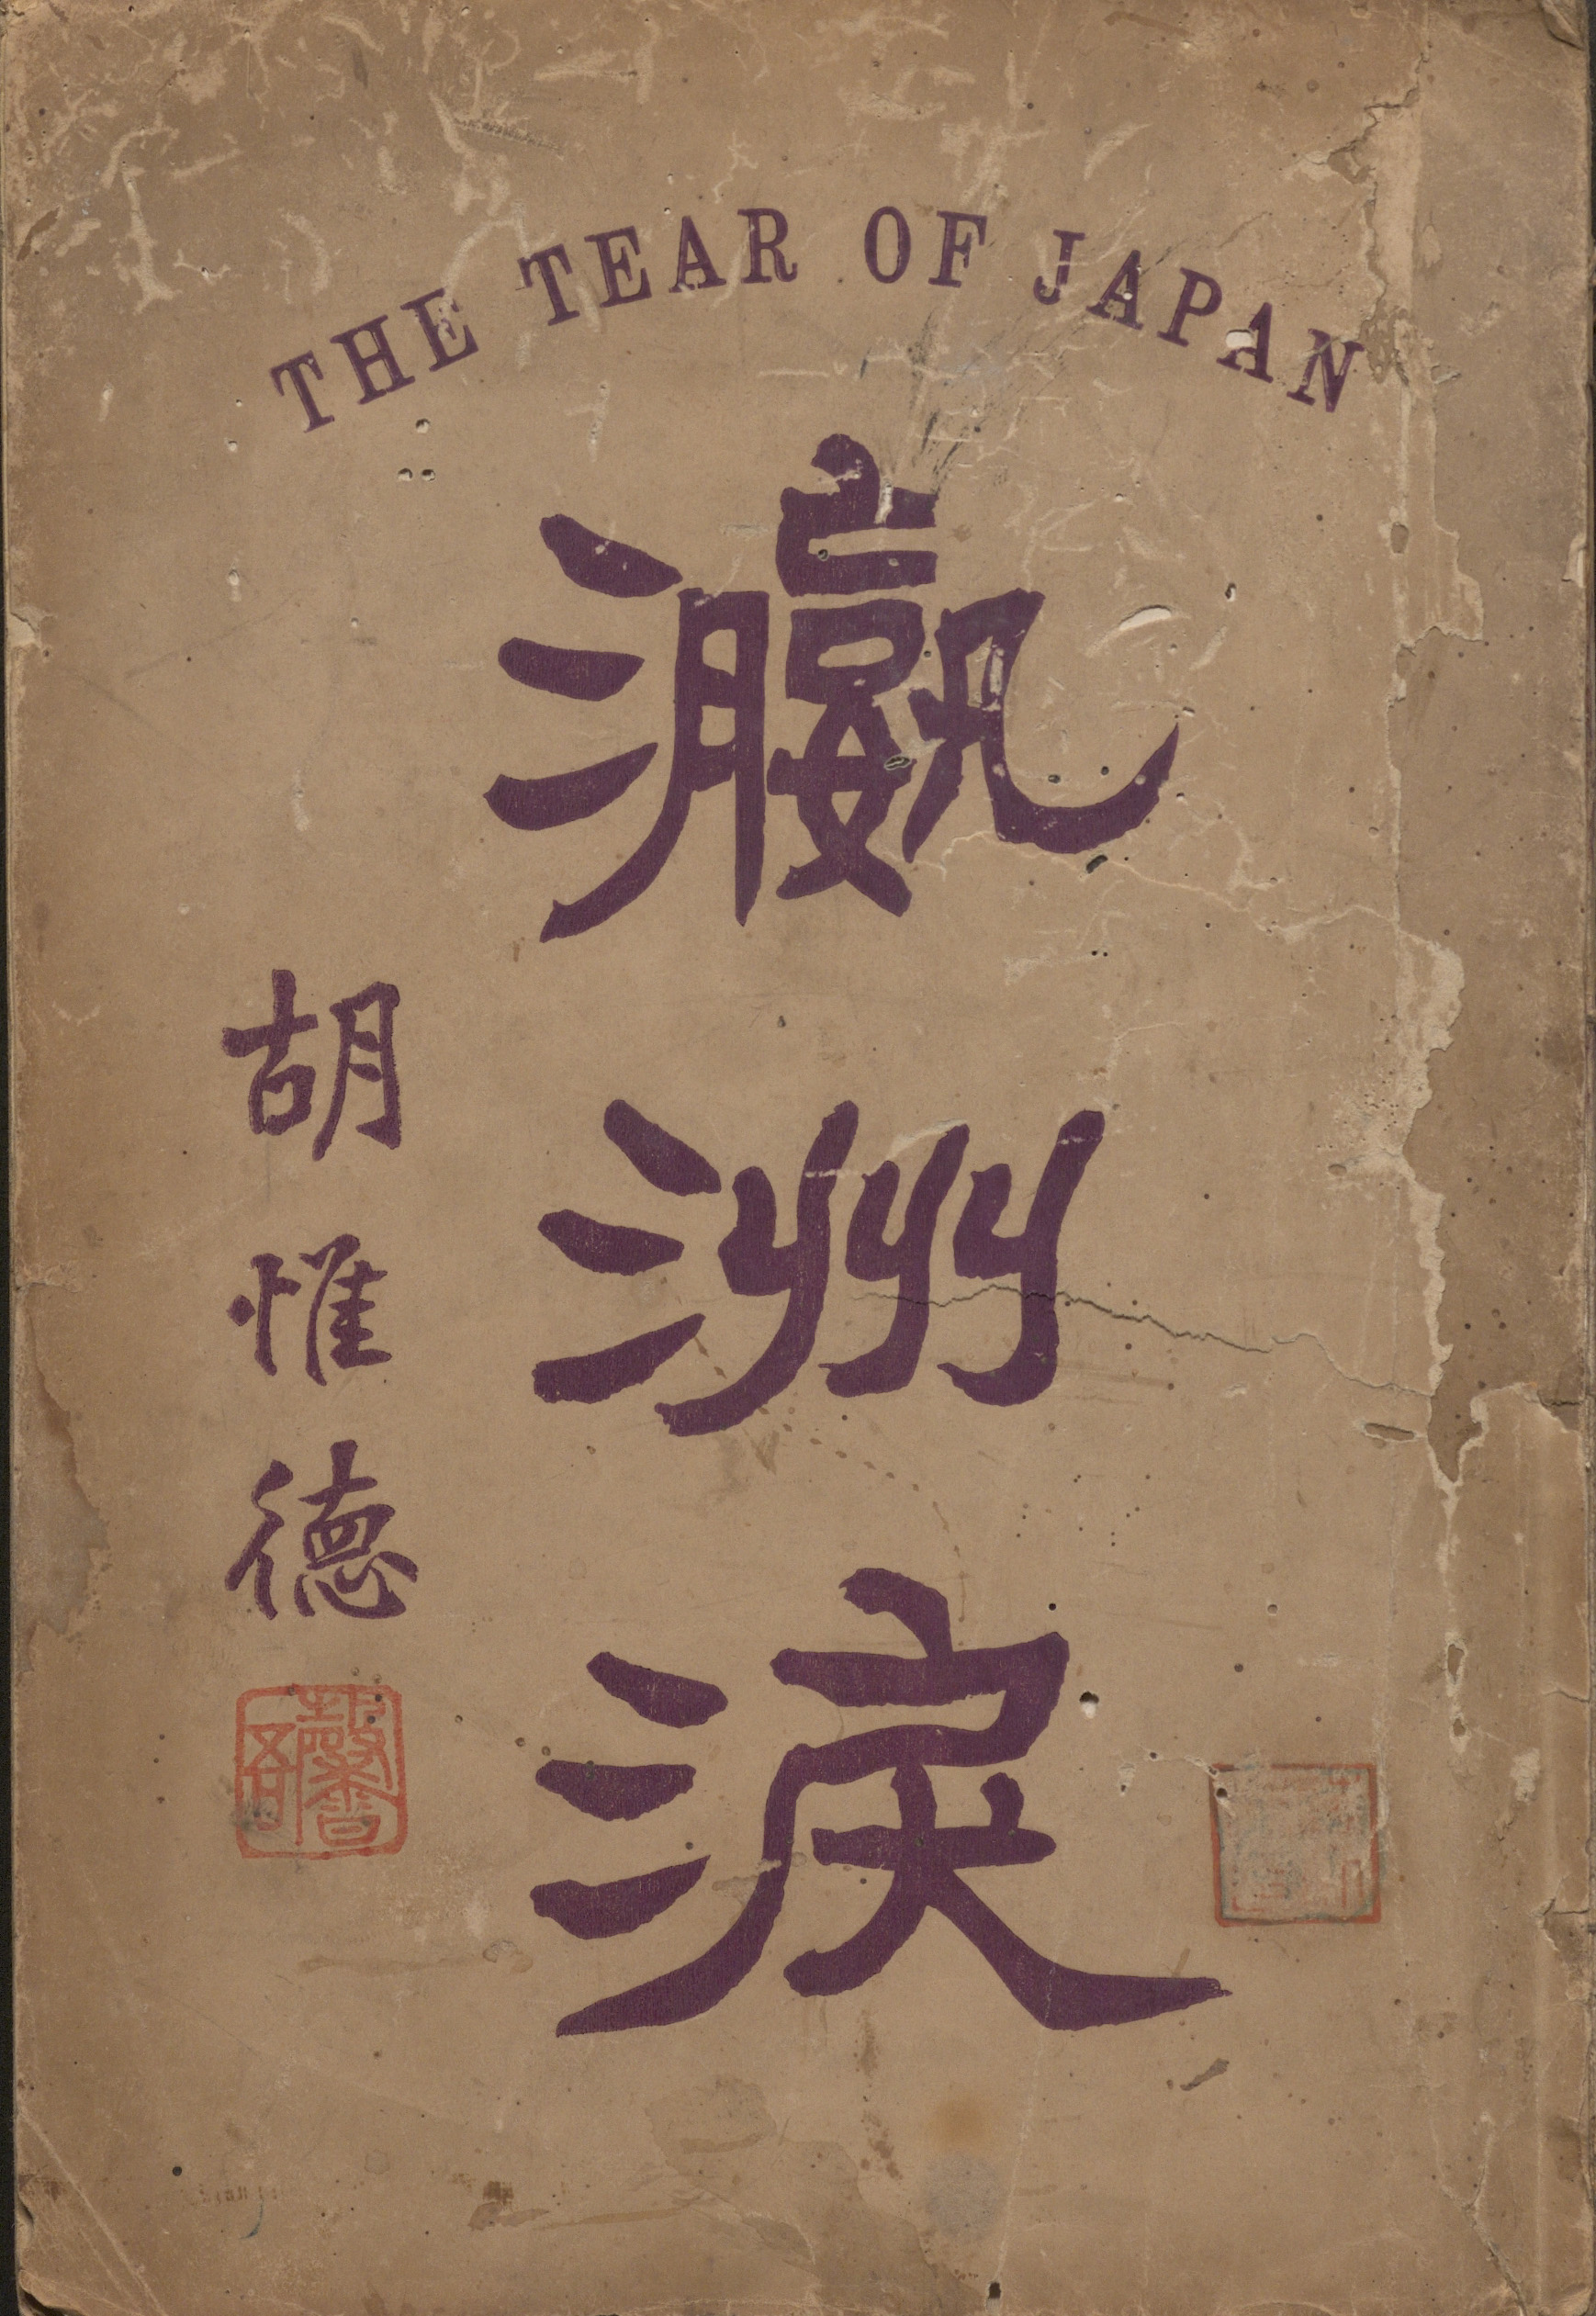 THE TEAR OF JAPAN
瀛洲淚
胡惟德
馨吾